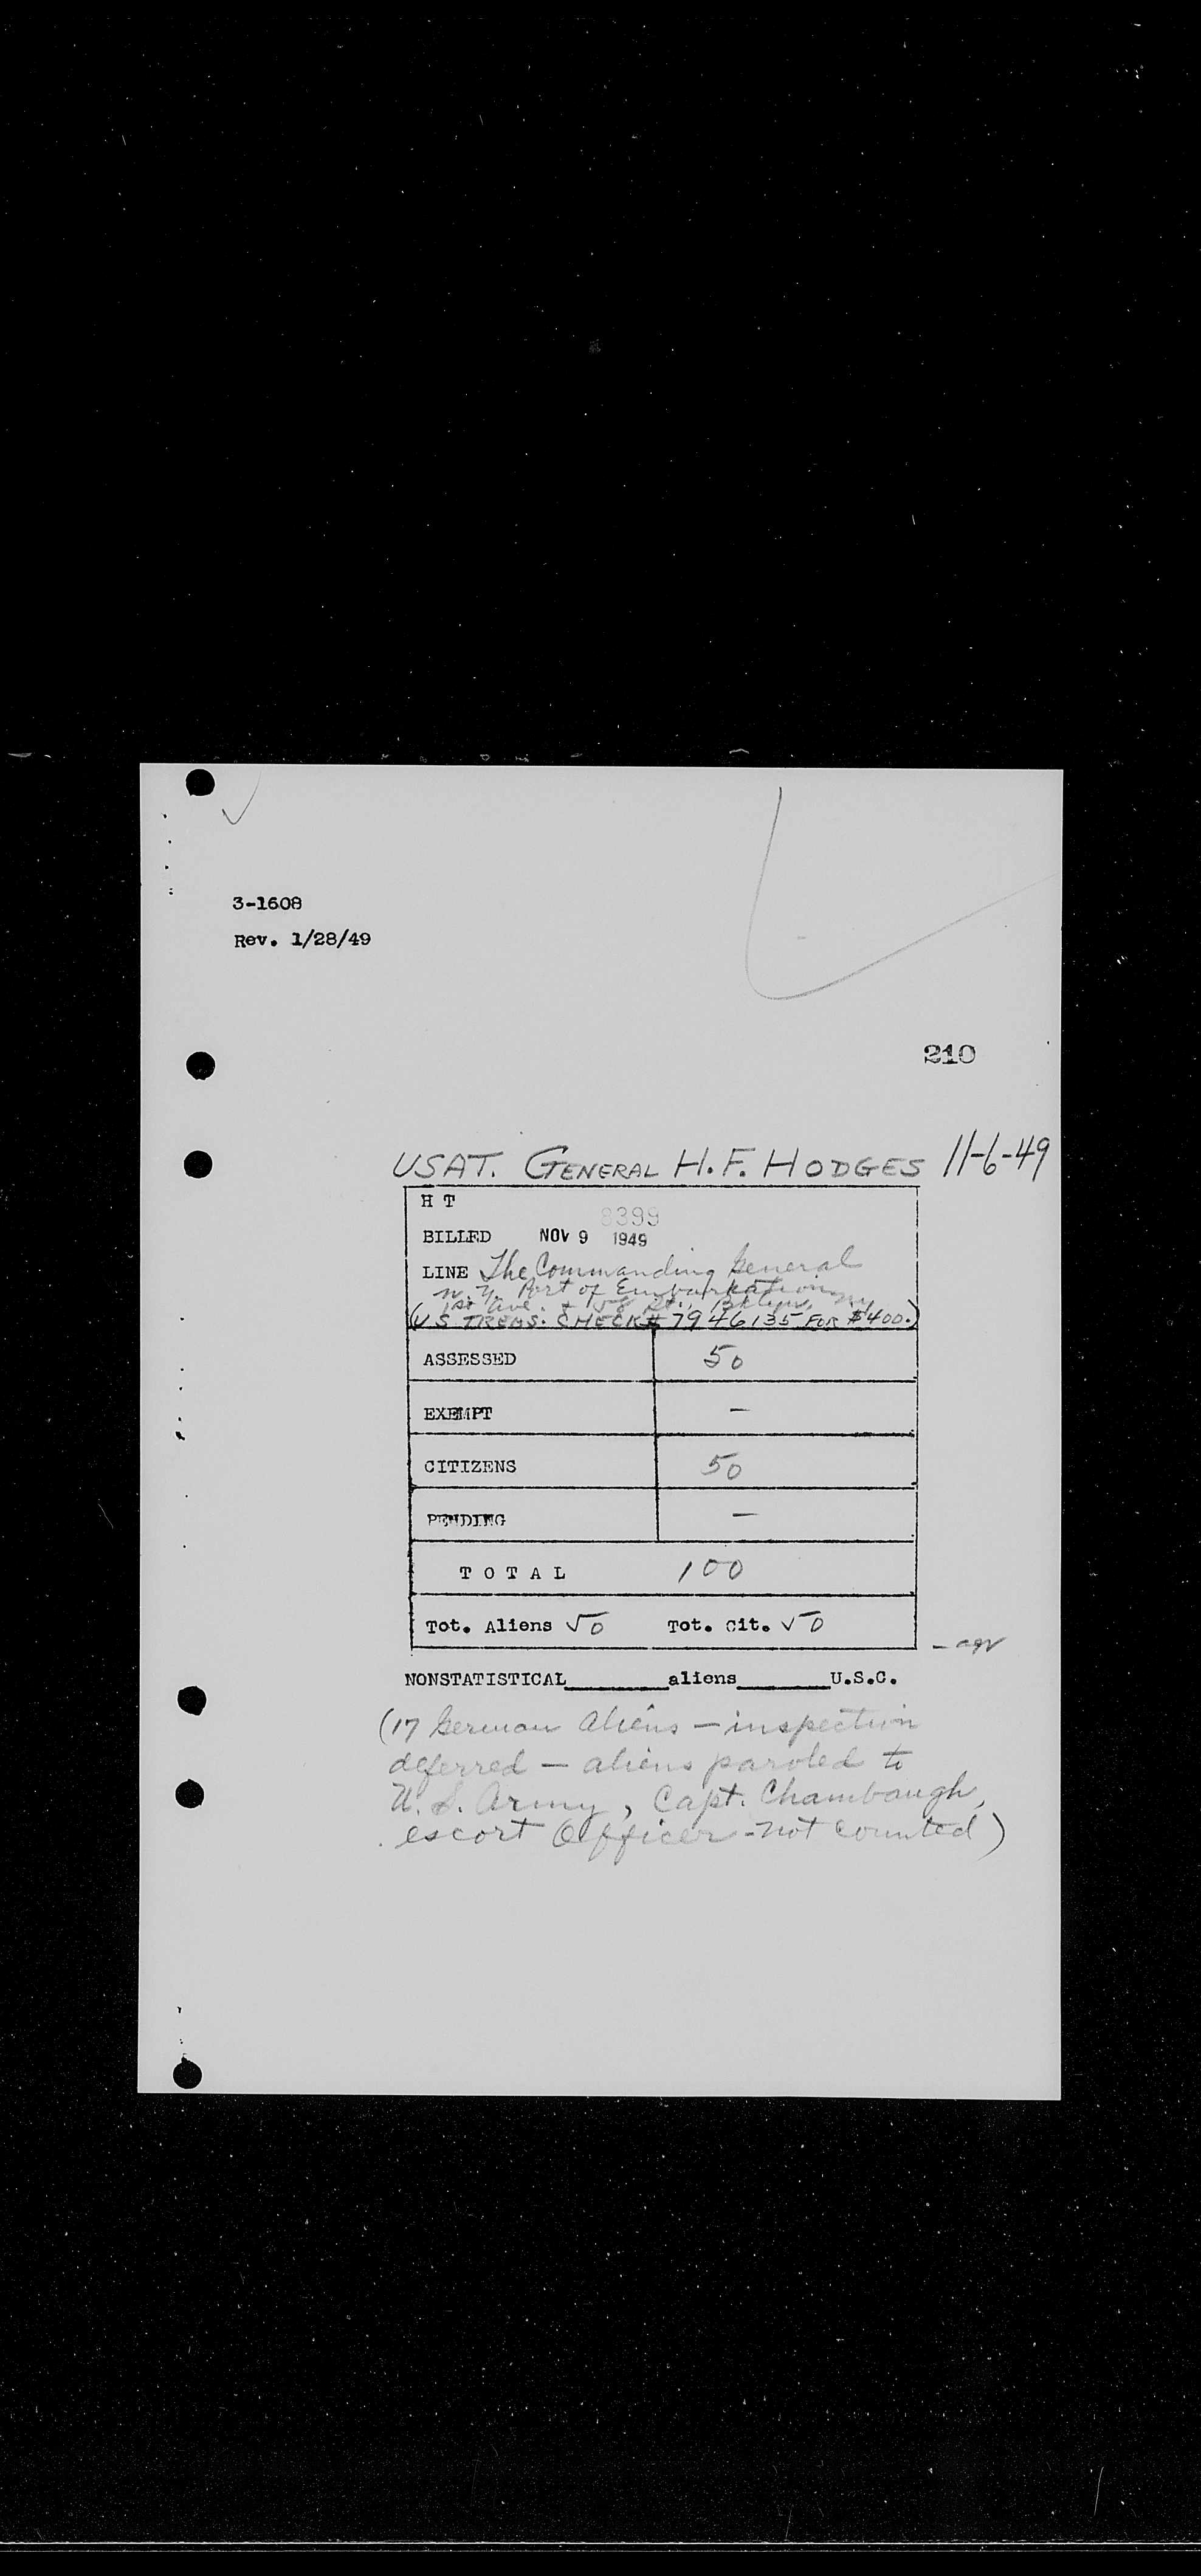 3-1608
Rev. 1/28/49
210
USAT. GENERAL H.F. HODGES 11-6-49
H T
8399
BILLED NOV 9 1949
LINE The Commanding General
N.Y. Port of Embarkation
1st Ave. & 58 St., Bklyn, NY
(US TREAS. CHECK # 7946135 FOR $400.)
ASSESSED 50
EXEMPT —
CITIZENS 50
PENDING —
T O T A L 100
Tot. Aliens 50 Tot. Cit. 50
NONSTATISTICAL________aliens________U.S.C.
(17 German aliens — inspection
deferred — aliens paroled to
U.S. Army, Capt. Chambaugh,
escort Officer - not counted)